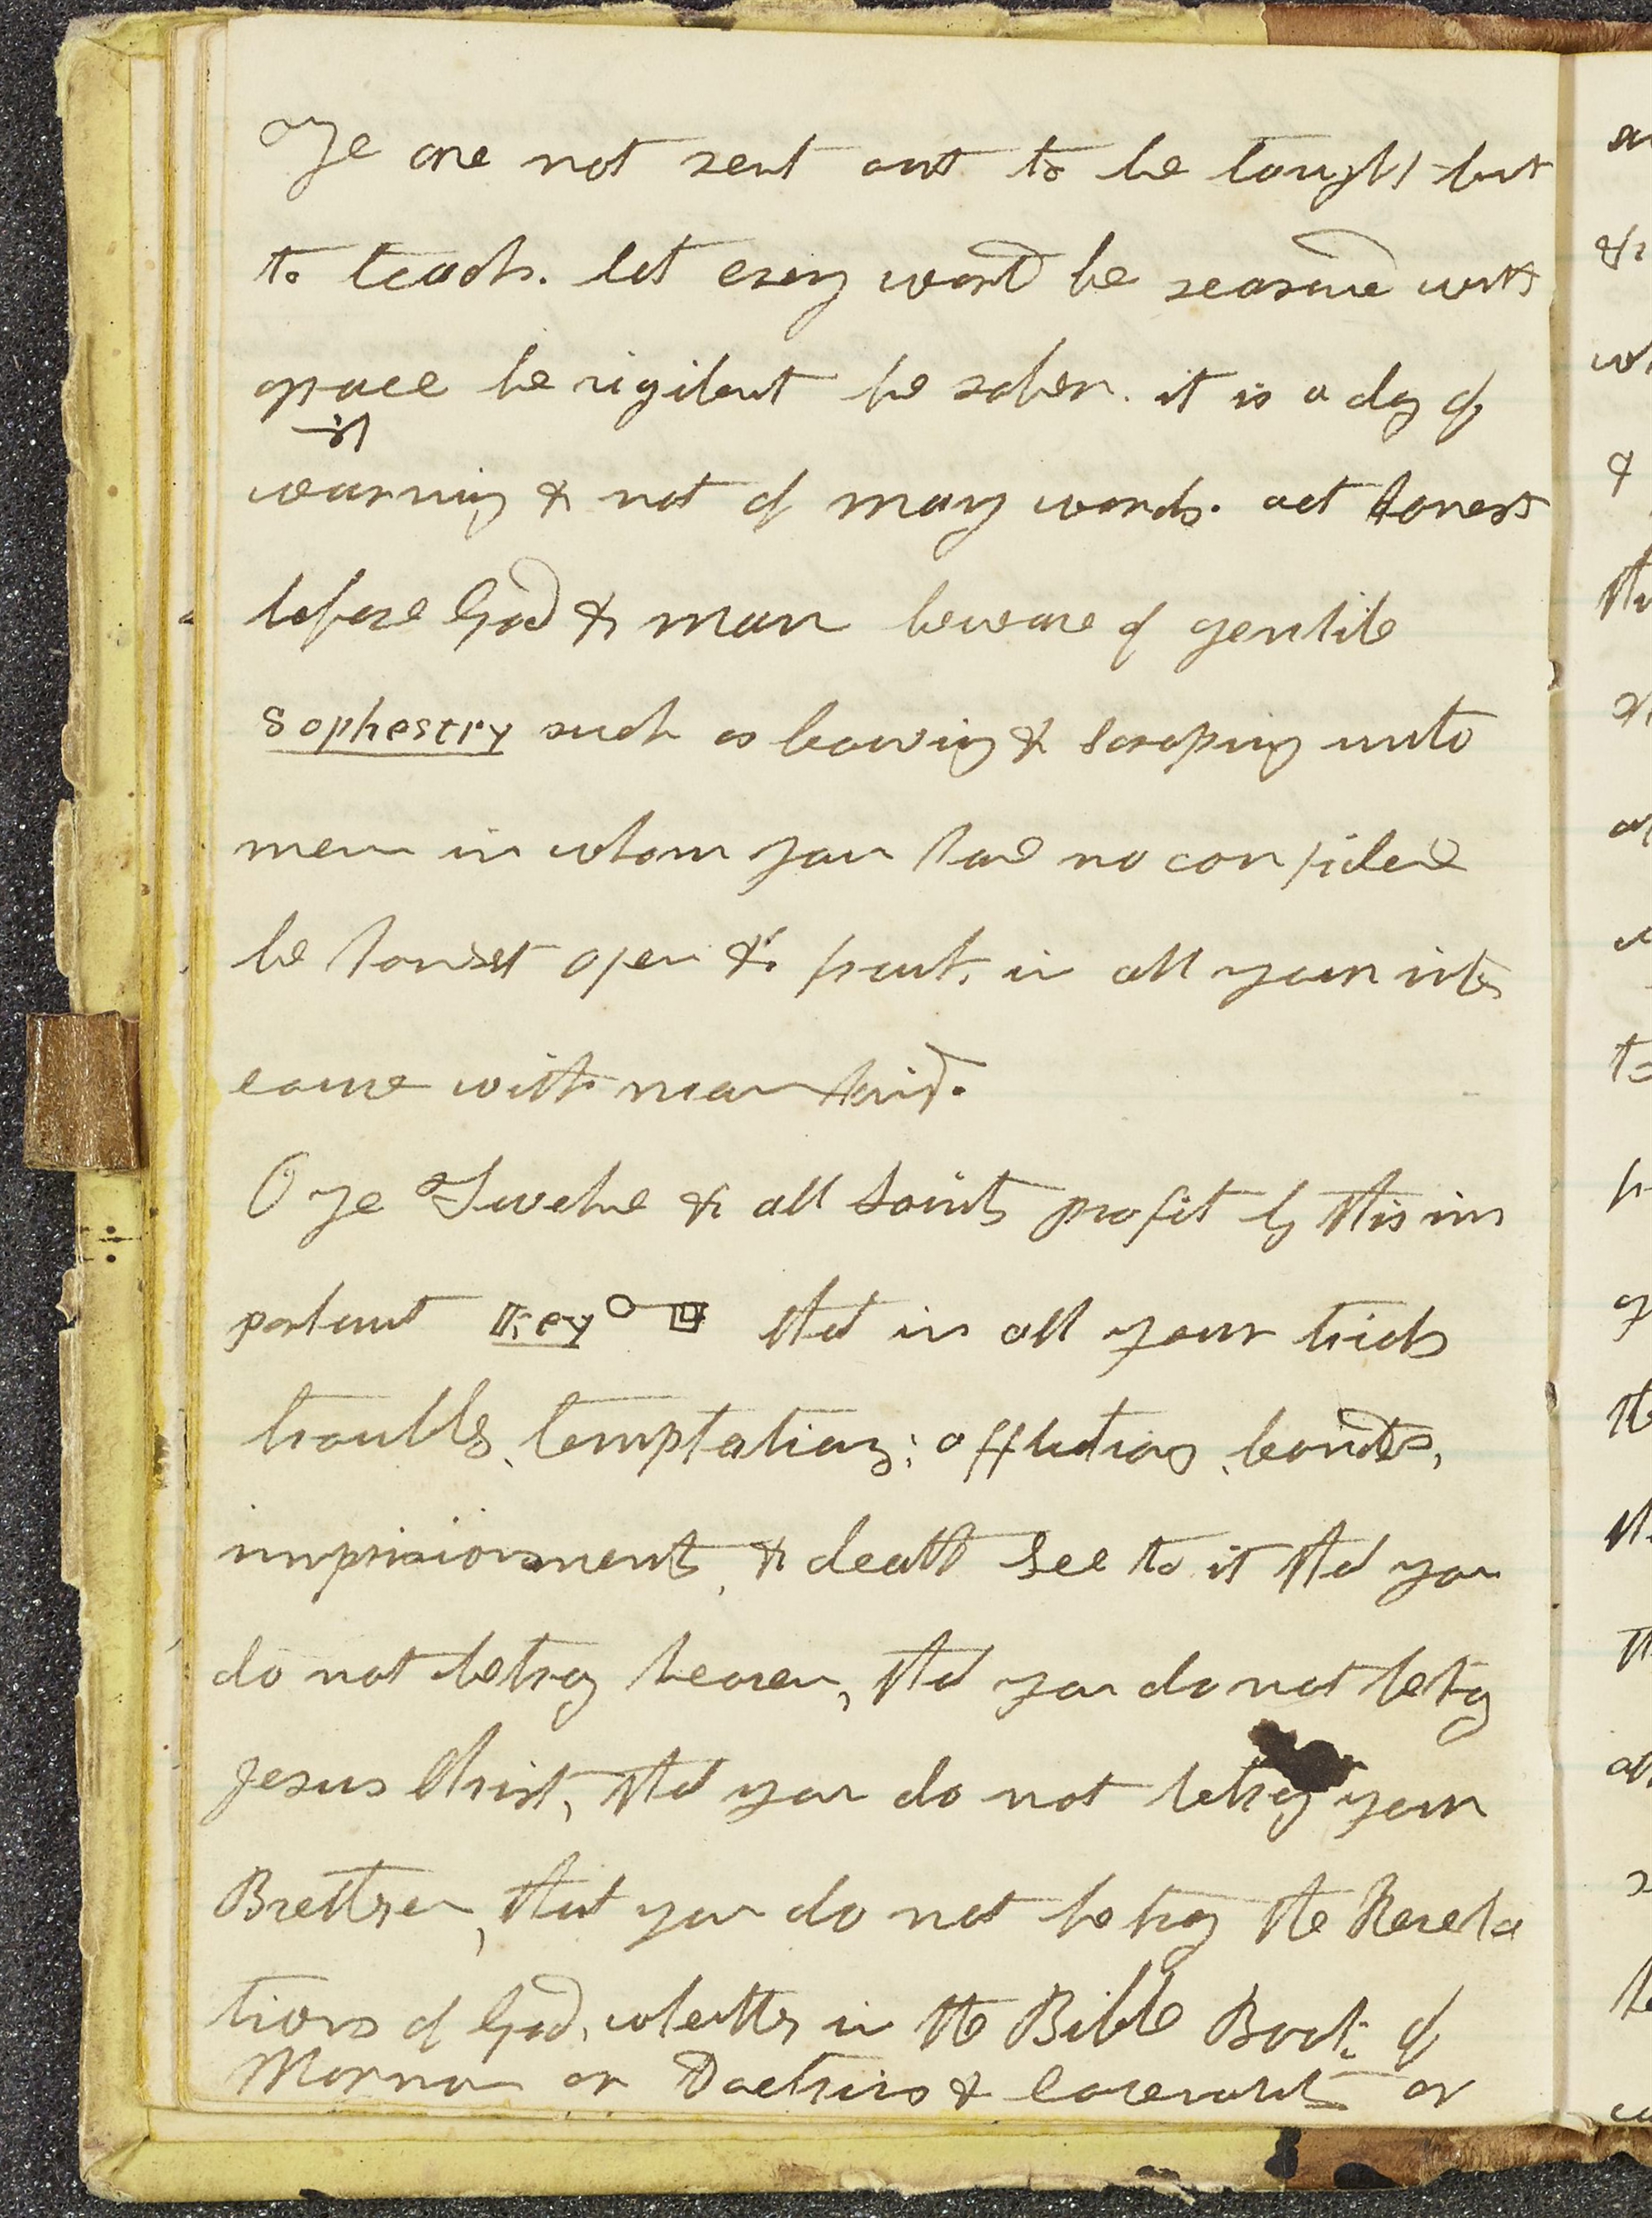 Ye are not sent out to be taught but
to teach. let every word be seasoned with
grace be vigilent be sober. it is a day of
warning & not of many words. act honest
before God & man beware of gentile
Sophestry such as bowing & scraping unto
men in whom you have no confidence
be honest open & frank in all your inter
course with mankind.
O ye Twelve & all Saints profit by this im
portant Key that in all your trials
troubles, temptations, afflictions, bonds,
imprisionments, & death See to it that you
do not betray heaven, that you do not betray
Jesus Christ, that you do not betray your
Brethren, that you do not betray the Revela
tions of God, whether in the Bible Book of
Mormon or Doctrins & Covenants or